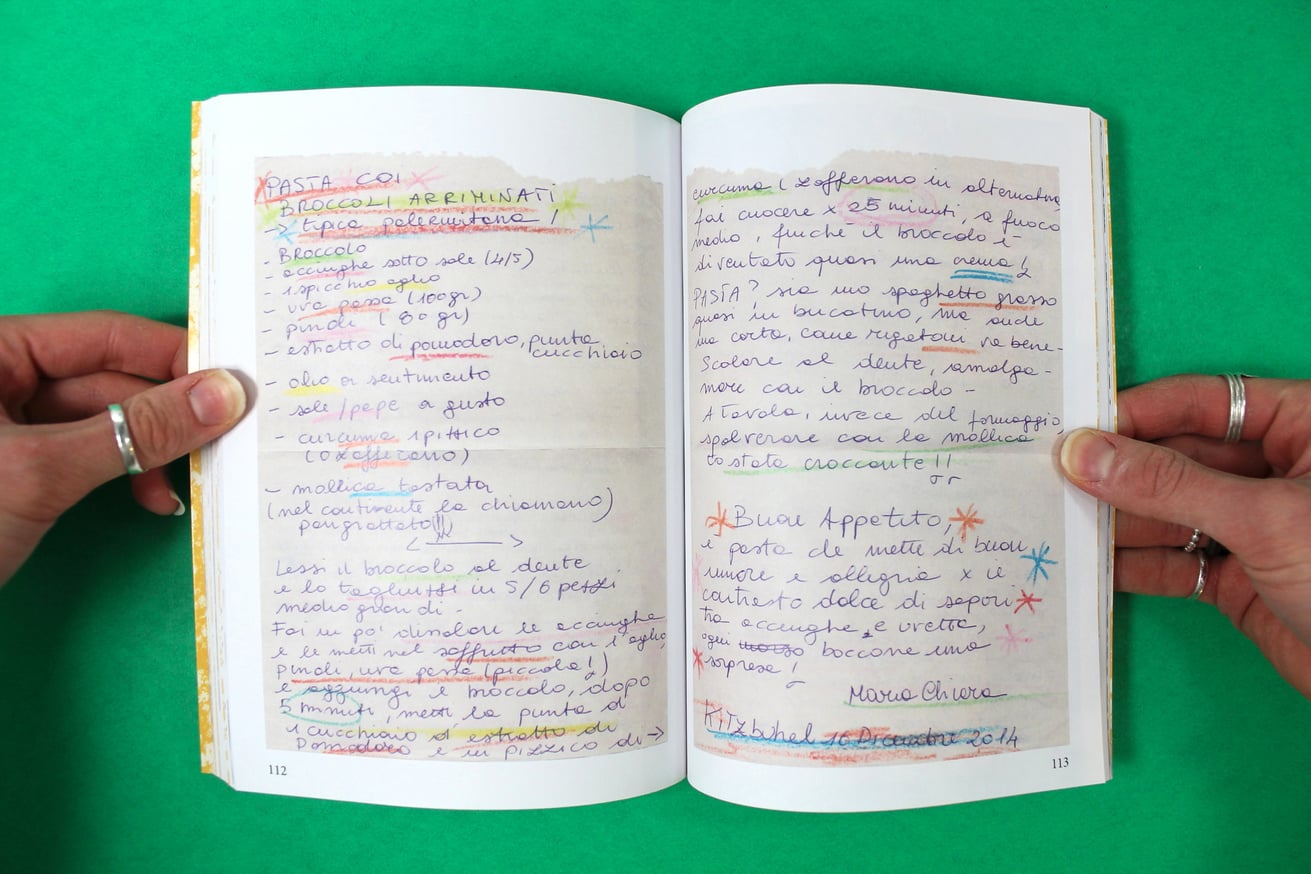 PASTA COI
BROCCOLI ARRIMINATI
-> tipica palermitana!
- BROCCOLO
- acciughe sotto sale (4/5)
- 1 spicchio aglio
- uva passa (100gr)
- pinoli (80 gr)
- estratto di pomodoro, punta
cucchiaio
- olio a sentimento
- sale/pepe a gusto
- curcuma 1 pizzico
(o zafferano)
- mollica tostata
(nel continente la chiamano)
pangrattato!!!
Lessi il broccolo al dente
e lo tagliuzzi in 5/6 pezzi
medio grandi -
Fai un po' dissalare le acciughe
e le metti nel soffritto con l'aglio,
pinoli, uva passa (piccola!)
e aggiungi il broccolo, dopo
5 minuti, metti la punta di
1 cucchiaio di estratto di
Pomodoro e un pizzico di ->
112
curcuma (zafferano in alternativa
fai cuocere x 25 minuti, a fuoco
medio, finché il broccolo è
diventato quasi una crema!
PASTA? sia uno spaghetto grosso
quasi un bucatino, ma anche
una corta, come rigatoni va bene-
Scolare al dente, amalga-
mare con il broccolo -
A Tavola, invece del formaggio,
spolverare con la mollica
tostata croccante!!
Buon Appetito,
è pasta che mette di buon
umore e allegria x il
contrasto dolce di sapori
tra acciughe e uvetta,
ogni morso boccone una
sorpresa!
Maria Chiara
Kitzbühel 16 Dicembre 2014
113